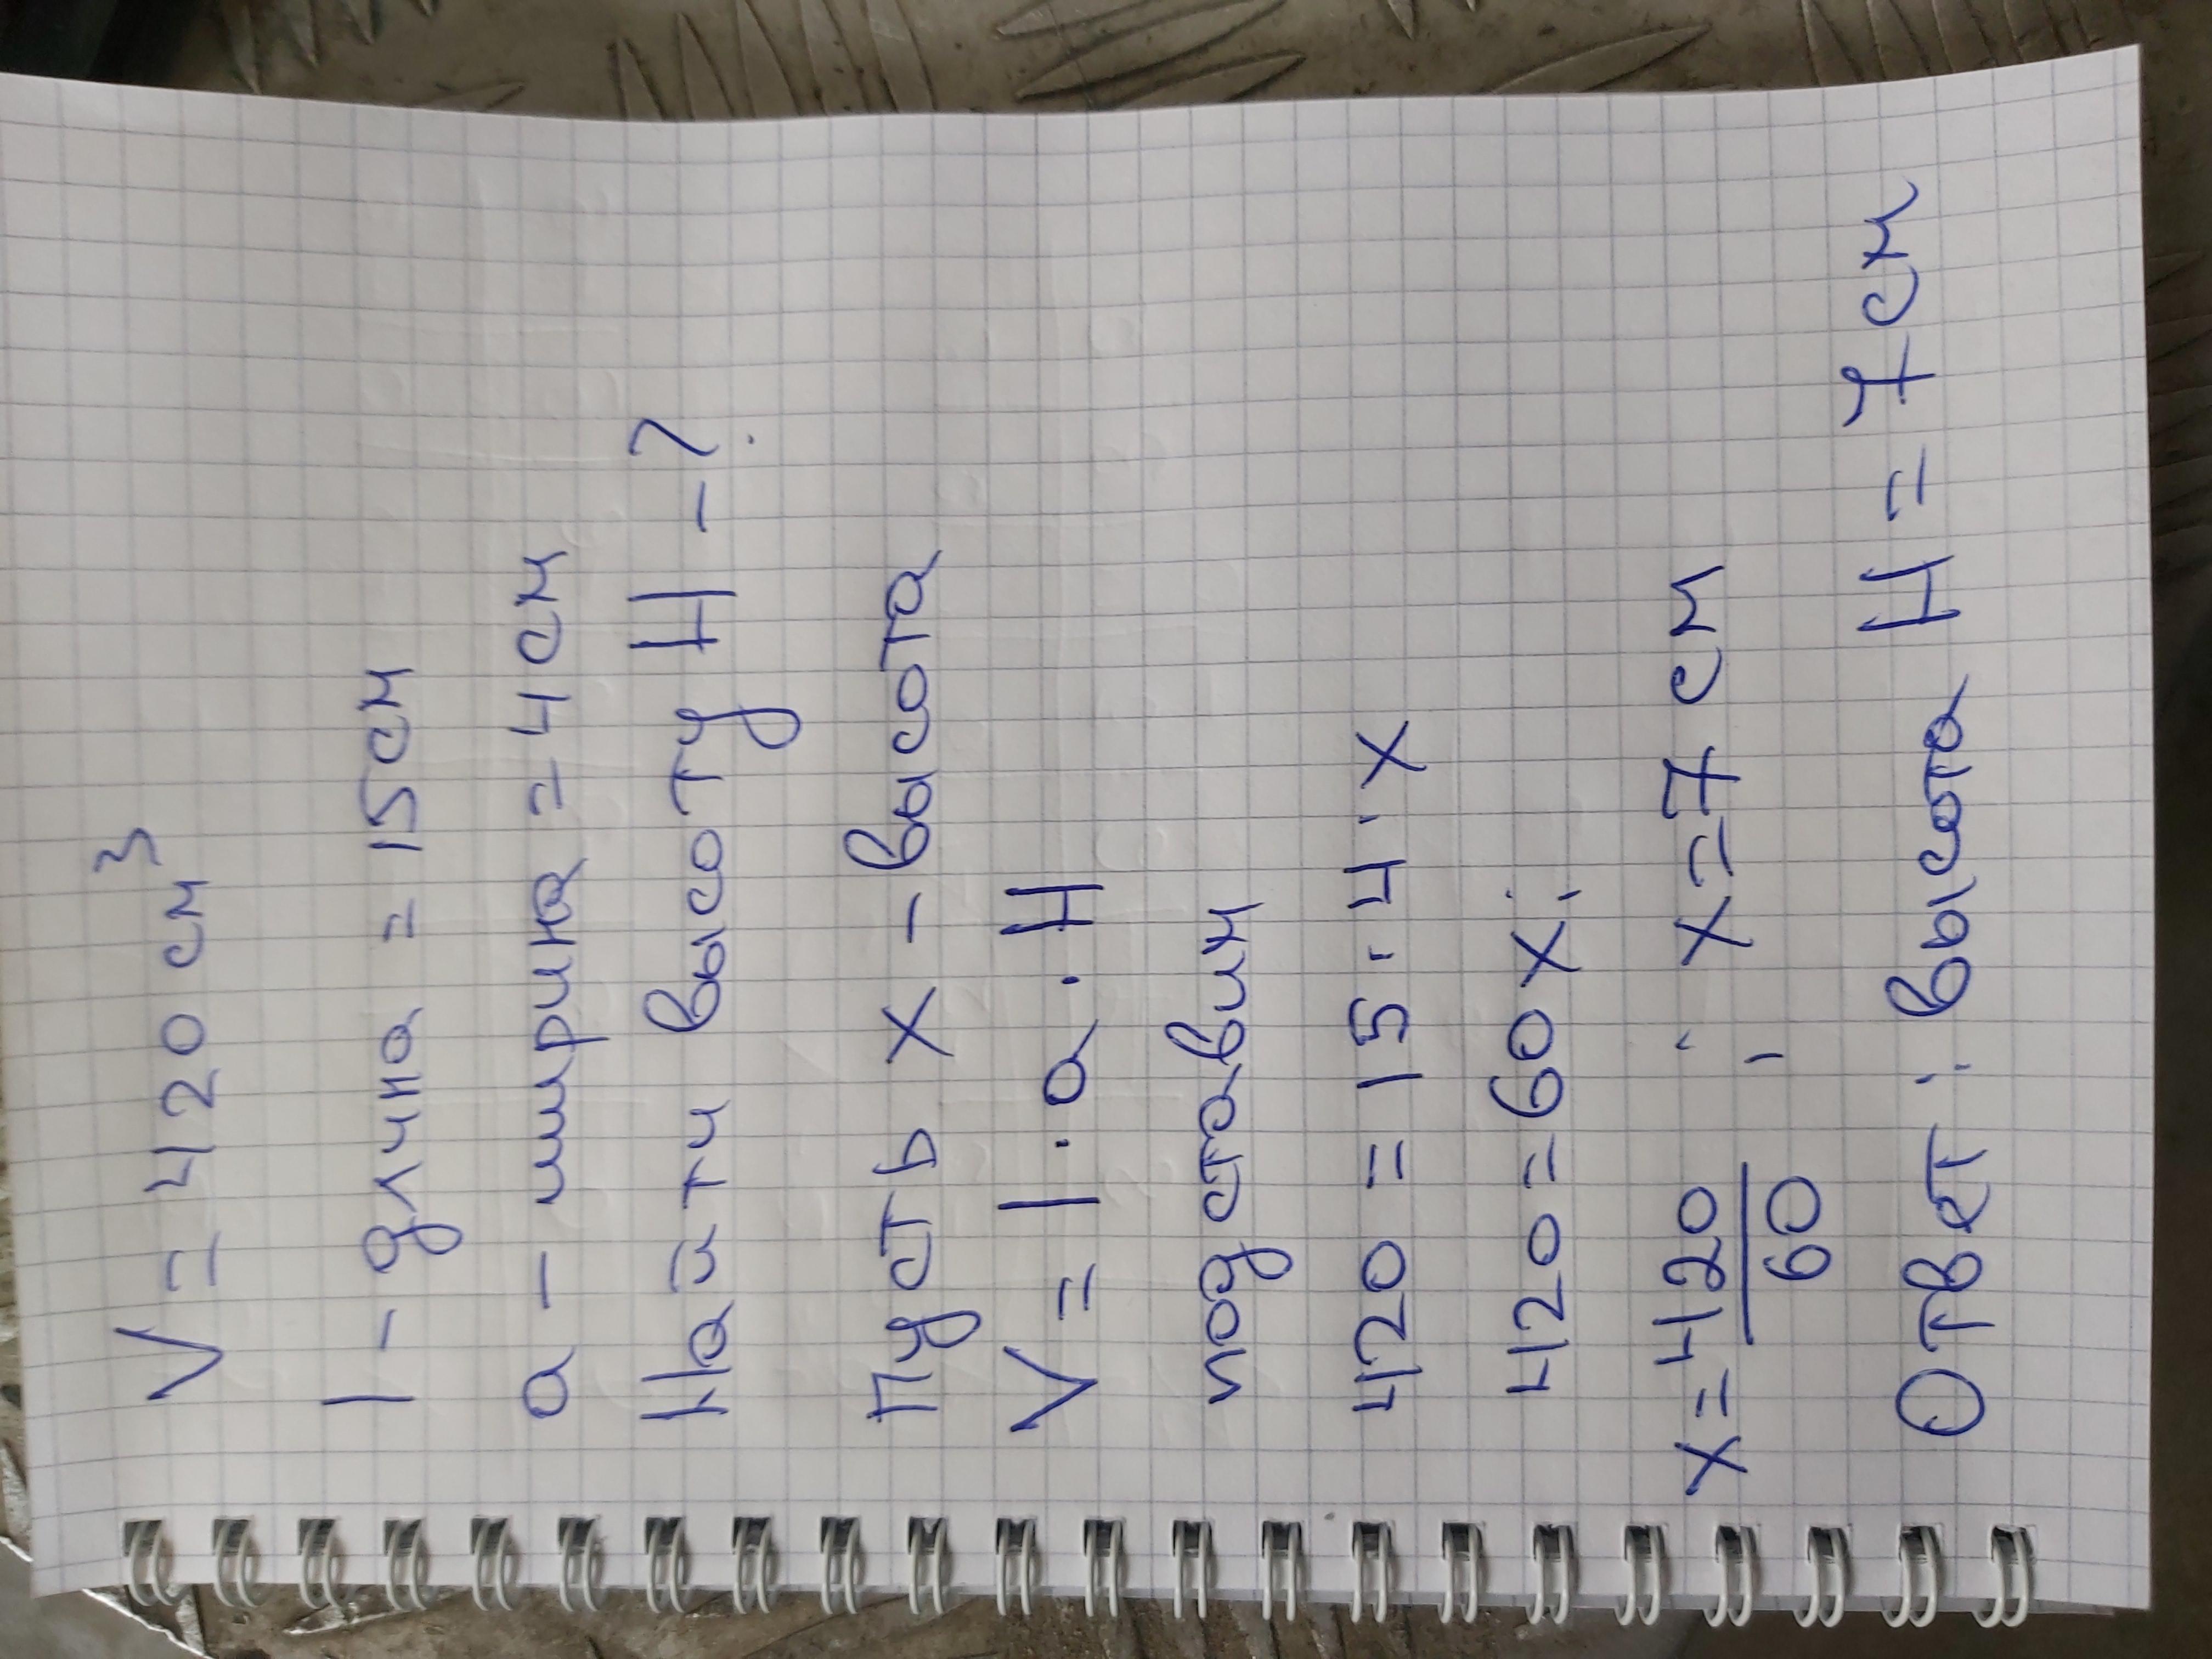 V = 420 см³
l - длина = 15 см
a - ширина = 4 см
Найти высоту H - ?
Пусть x - высота
V = l · a · H
подставим
420 = 15 · 4 · x
420 = 60 x ;
x = 420/60 ; x = 7 см
Ответ : высота H = 7 см